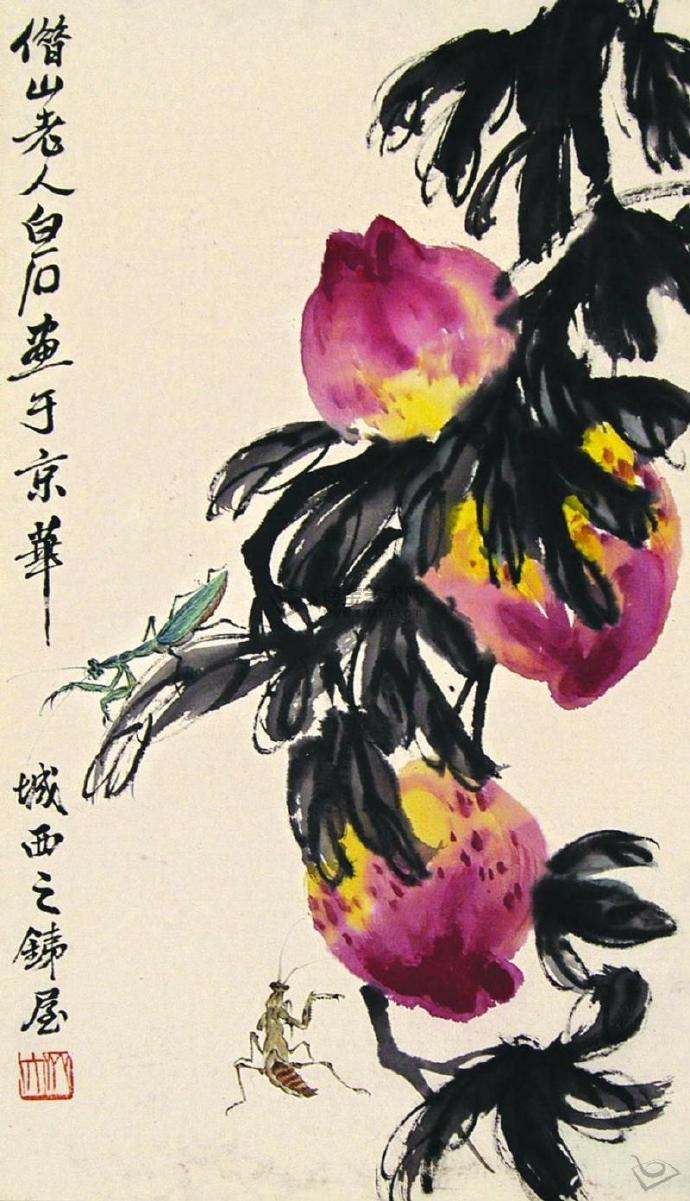 借山老人白石画于京華
城西之鐵屋
木人